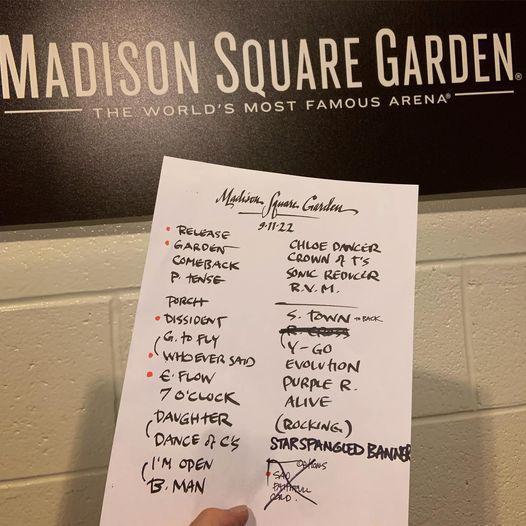 MADISON SQUARE GARDEN®
THE WORLD'S MOST FAMOUS ARENA®
Madison Square Garden
9·11·22
RELEASE
GARDEN
COMEBACK
P. TENSE
PORCH
DISSIDENT
G. TO FLY
WHO EVER SAID
E. FLOW
7 O'CLOCK
DAUGHTER
DANCE of C'S
I'M OPEN
B. MAN
CHLOE DANCER
CROWN of T'S
SONIC REDUCER
R.V.M.
S. TOWN TO BACK
R. CROSS
Y-GO
EVOLUTION
PURPLE R.
ALIVE
(ROCKING)
STARSPANGLED BANNER
OPTIONS
SAD
FAITHFULL
COLD.